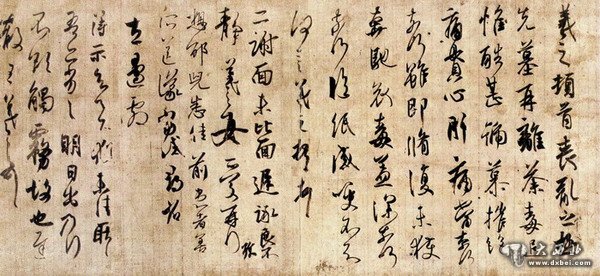 羲之頓首喪亂之極
先墓再離荼毒追
惟酷甚號慕摧絕
痛貫心肝痛當奈何
奈何雖即脩復未獲
奔馳哀毒益深奈何
奈何臨紙感哽不知
何言羲之頓首頓首
二謝面未比面遲詠良不
靜羲之女愛再拜
想邵兒悉佳前患者善
所送議當試尋省
左邊劇
得示知足下猶未佳耿耿
吾亦劣劣明日出乃行
不欲觸霧故也遲
散王羲之頓首
大西北网
www.dxbei.com